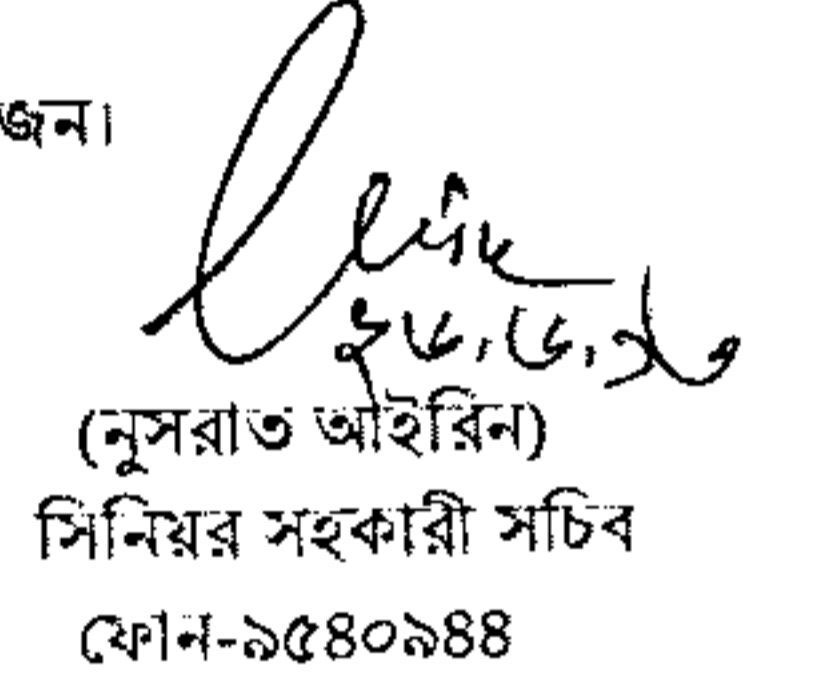 জন।
(নুসরাত আইরিন)
সিনিয়র সহকারী সচিব
ফোন-৯৫৪০৯৪৪